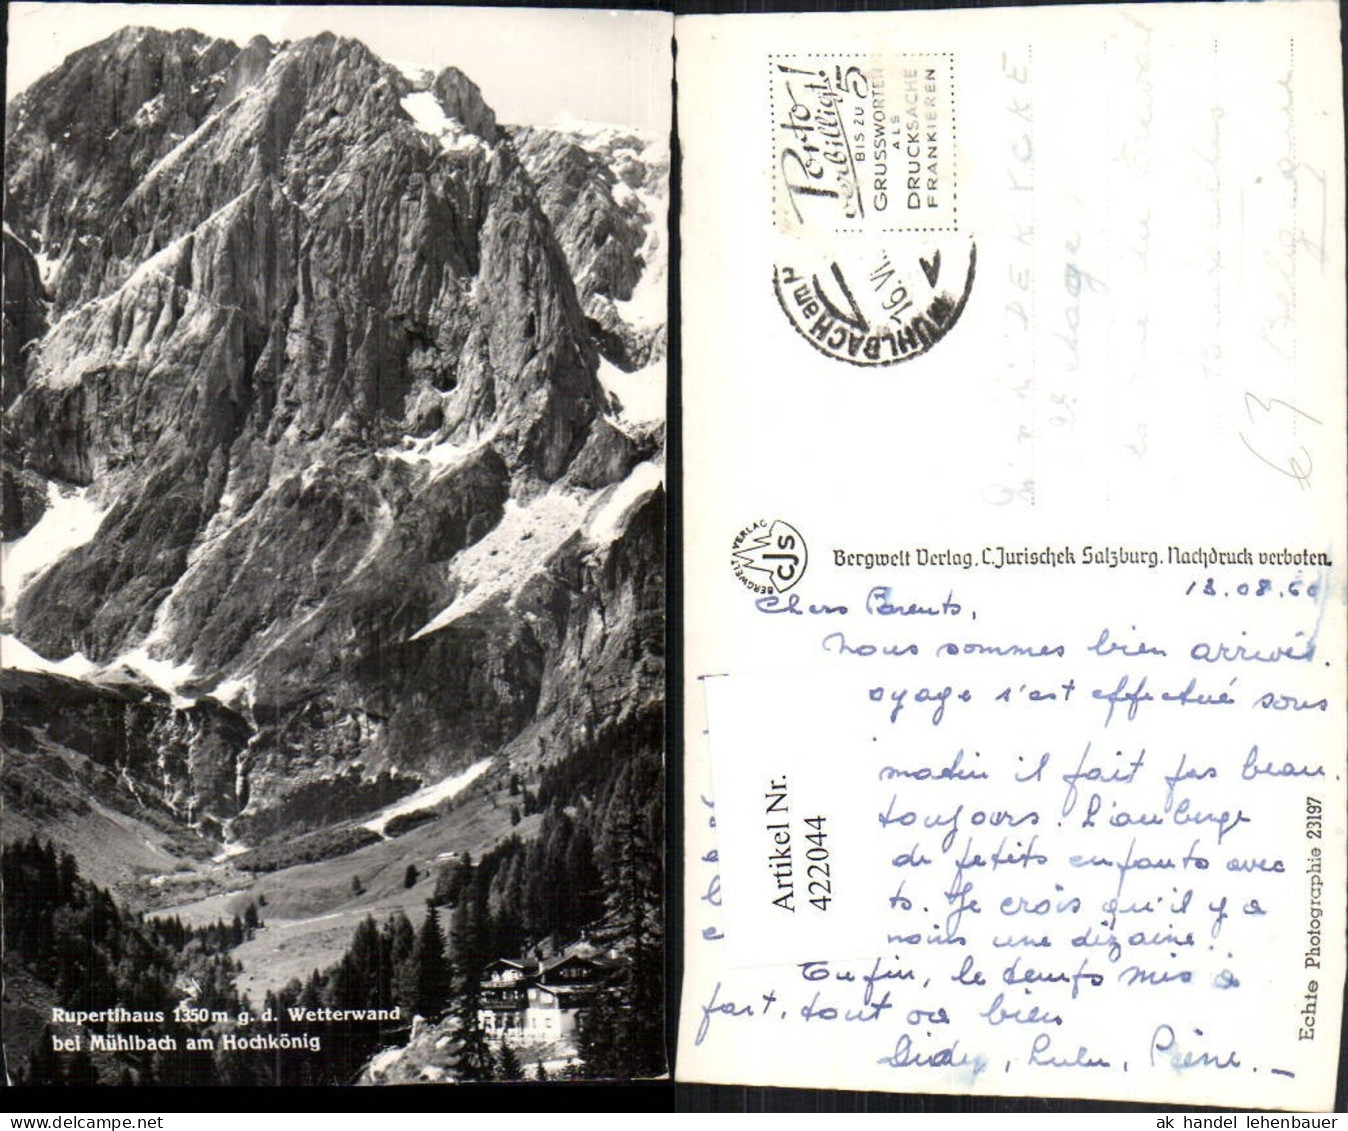 Rupertihaus 1350m g. d. Wetterwand
bei Mühlbach am Hochkönig
Porto!
verbilligt!
BIS ZU 5
GRUSSWORTEN
ALS
DRUCKSACHE
FRANKIEREN
MÜHLBACH am H
16.VI
63
BERGWELT VERLAG
CJS
Bergwelt Verlag, C. Jurischek Salzburg. Nachdruck verboten.
13.08.60
Chers Parents,
Nous sommes bien arrivés.
oyage s'est effectué sous
matin il fait pas beau.
toujours. L'auberge
de petits enfants avec
ts. Je crois qu'il y a
moins une dizaine.
Enfin, le temps mis à
part, tout va bien
Lulu,
Artikel Nr.
422044
Echte Photographie 23197
ak handel lehenbauer